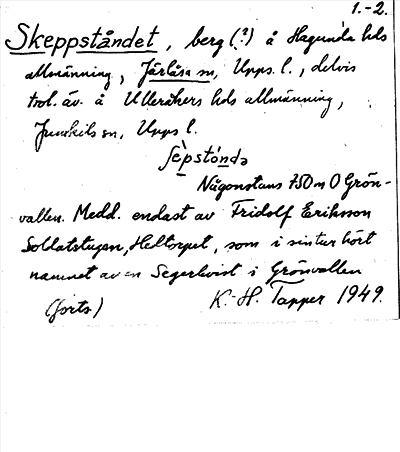 1.-2.
Skeppståndet, berg (?) å Hagunda hds
allmänning, Järlåsa sn, Upps. l., delvis
trol. äv. å Ulleråkers hds allmänning,
Jumkils sn, Upps l.
Någonstans 750 m O Grön-
vallen. Medd. endast av Fridolf Eriksson
Soldatstugan, Heltorpet, som i sin tur hört
namnet av en Segerkvist i Grönvallen
(forts) K.-H. Tapper 1949.